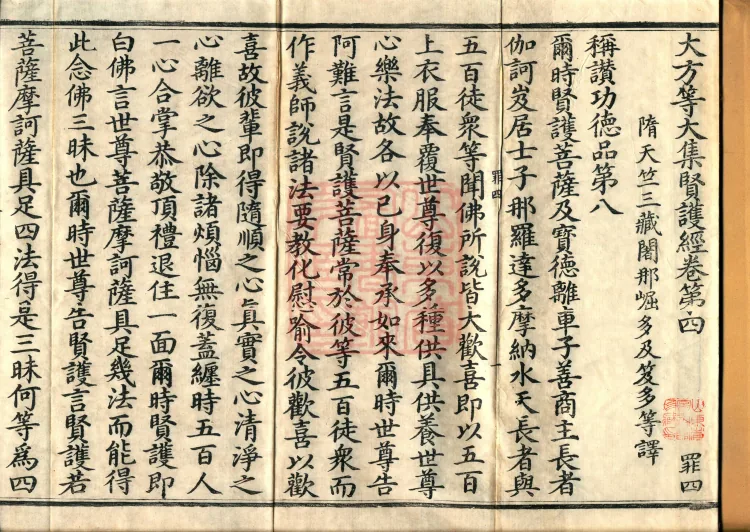 大方等大集賢護經卷第四 罪四
隋天竺三藏闍那崛多及笈多等譯
稱讚功德品第八
爾時賢護菩薩及寶德離車子善商主長者
伽訶岌居士子那羅達多摩納水天長者與
罪四
五百徒衆等聞佛所說皆大歡喜即以五百
上衣服奉覆世尊復以多種供具供養世尊
心樂法故各以已身奉承如來爾時世尊告
阿難言是賢護菩薩常於彼等五百徒衆而
作義師說諸法要教化慰喻令彼歡喜以歡
喜故彼輩即得隨順之心真實之心清淨之
心離欲之心除諸煩惱無復蓋纏時五百人
一心合掌恭敬頂禮退住一面爾時賢護即
白佛言世尊菩薩摩訶薩具足幾法而能得
此念佛三昧也爾時世尊告賢護言賢護若
菩薩摩訶薩具足四法得是三昧何等為四